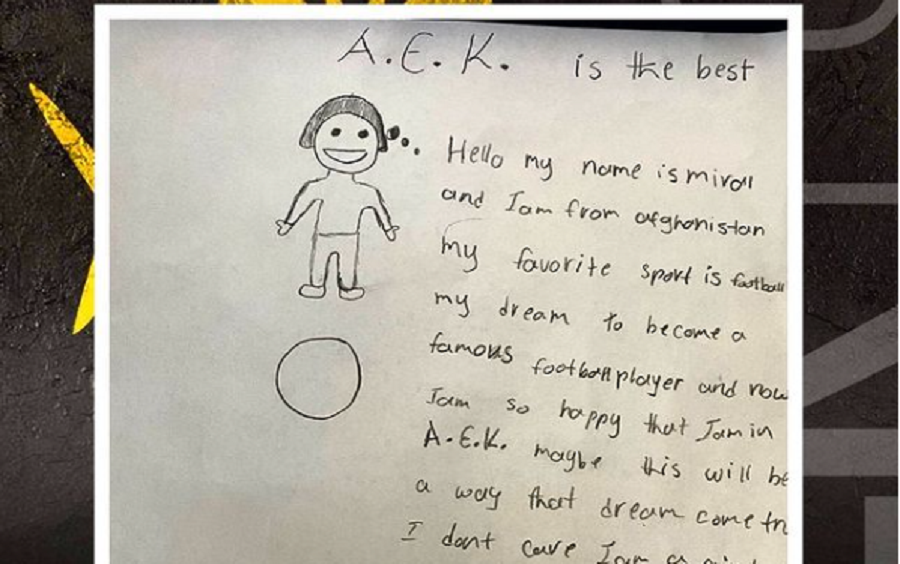 A.E.K. is the best
Hello my name is miral
and I am from afghanistan
my favorite sport is football
my dream to become a
famous football player and now
I am so happy that I am in
A.E.K. maybe this will be
a way that dream come
I dont care I am a